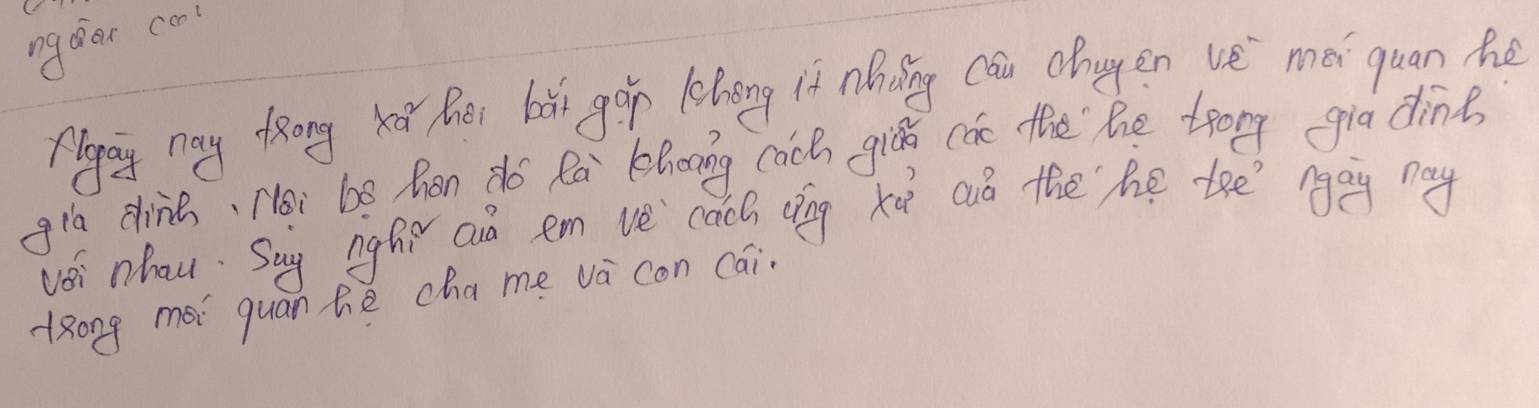 người co
Ngày nay trong xã hội bắt gặp không ít những câu chuyện về mối quan hệ
gia đình. Nội bộ hơn đó là khoảng cách giữa các thế hệ trong gia đình
với nhau. Suy nghĩ của em về cách ứng xử của thế hệ trẻ ngày nay
trong mối quan hệ cha mẹ và con cái.